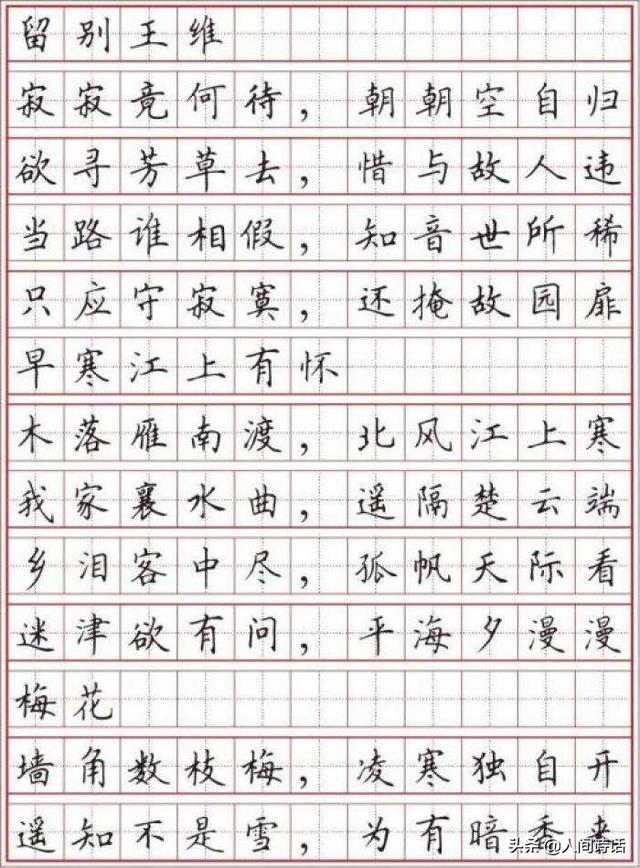 留别王维
寂寂竟何待，朝朝空自归
欲寻芳草去，惜与故人违
当路谁相假，知音世所稀
只应守寂寞，还掩故园扉
早寒江上有怀
木落雁南渡，北风江上寒
我家襄水曲，遥隔楚云端
乡泪客中尽，孤帆天际看
迷津欲有问，平海夕漫漫
梅花
墙角数枝梅，凌寒独自开
遥知不是雪，为有暗香来
头条@人间诗话